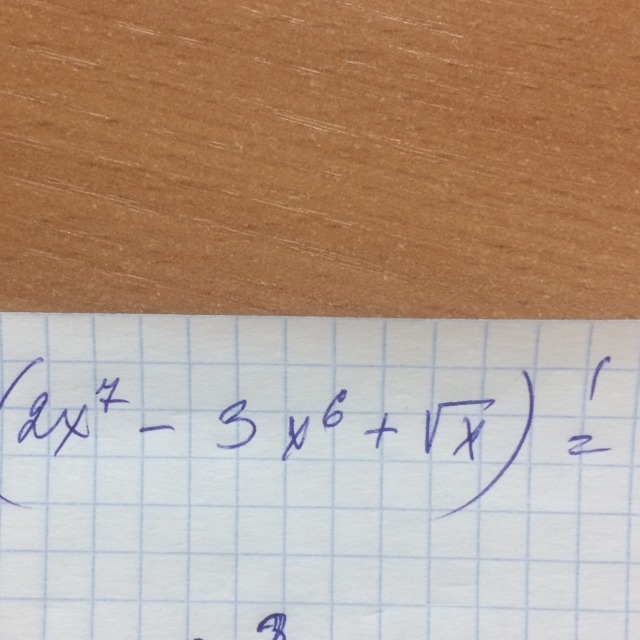 (2x⁷ - 3x⁶ + √x)' =